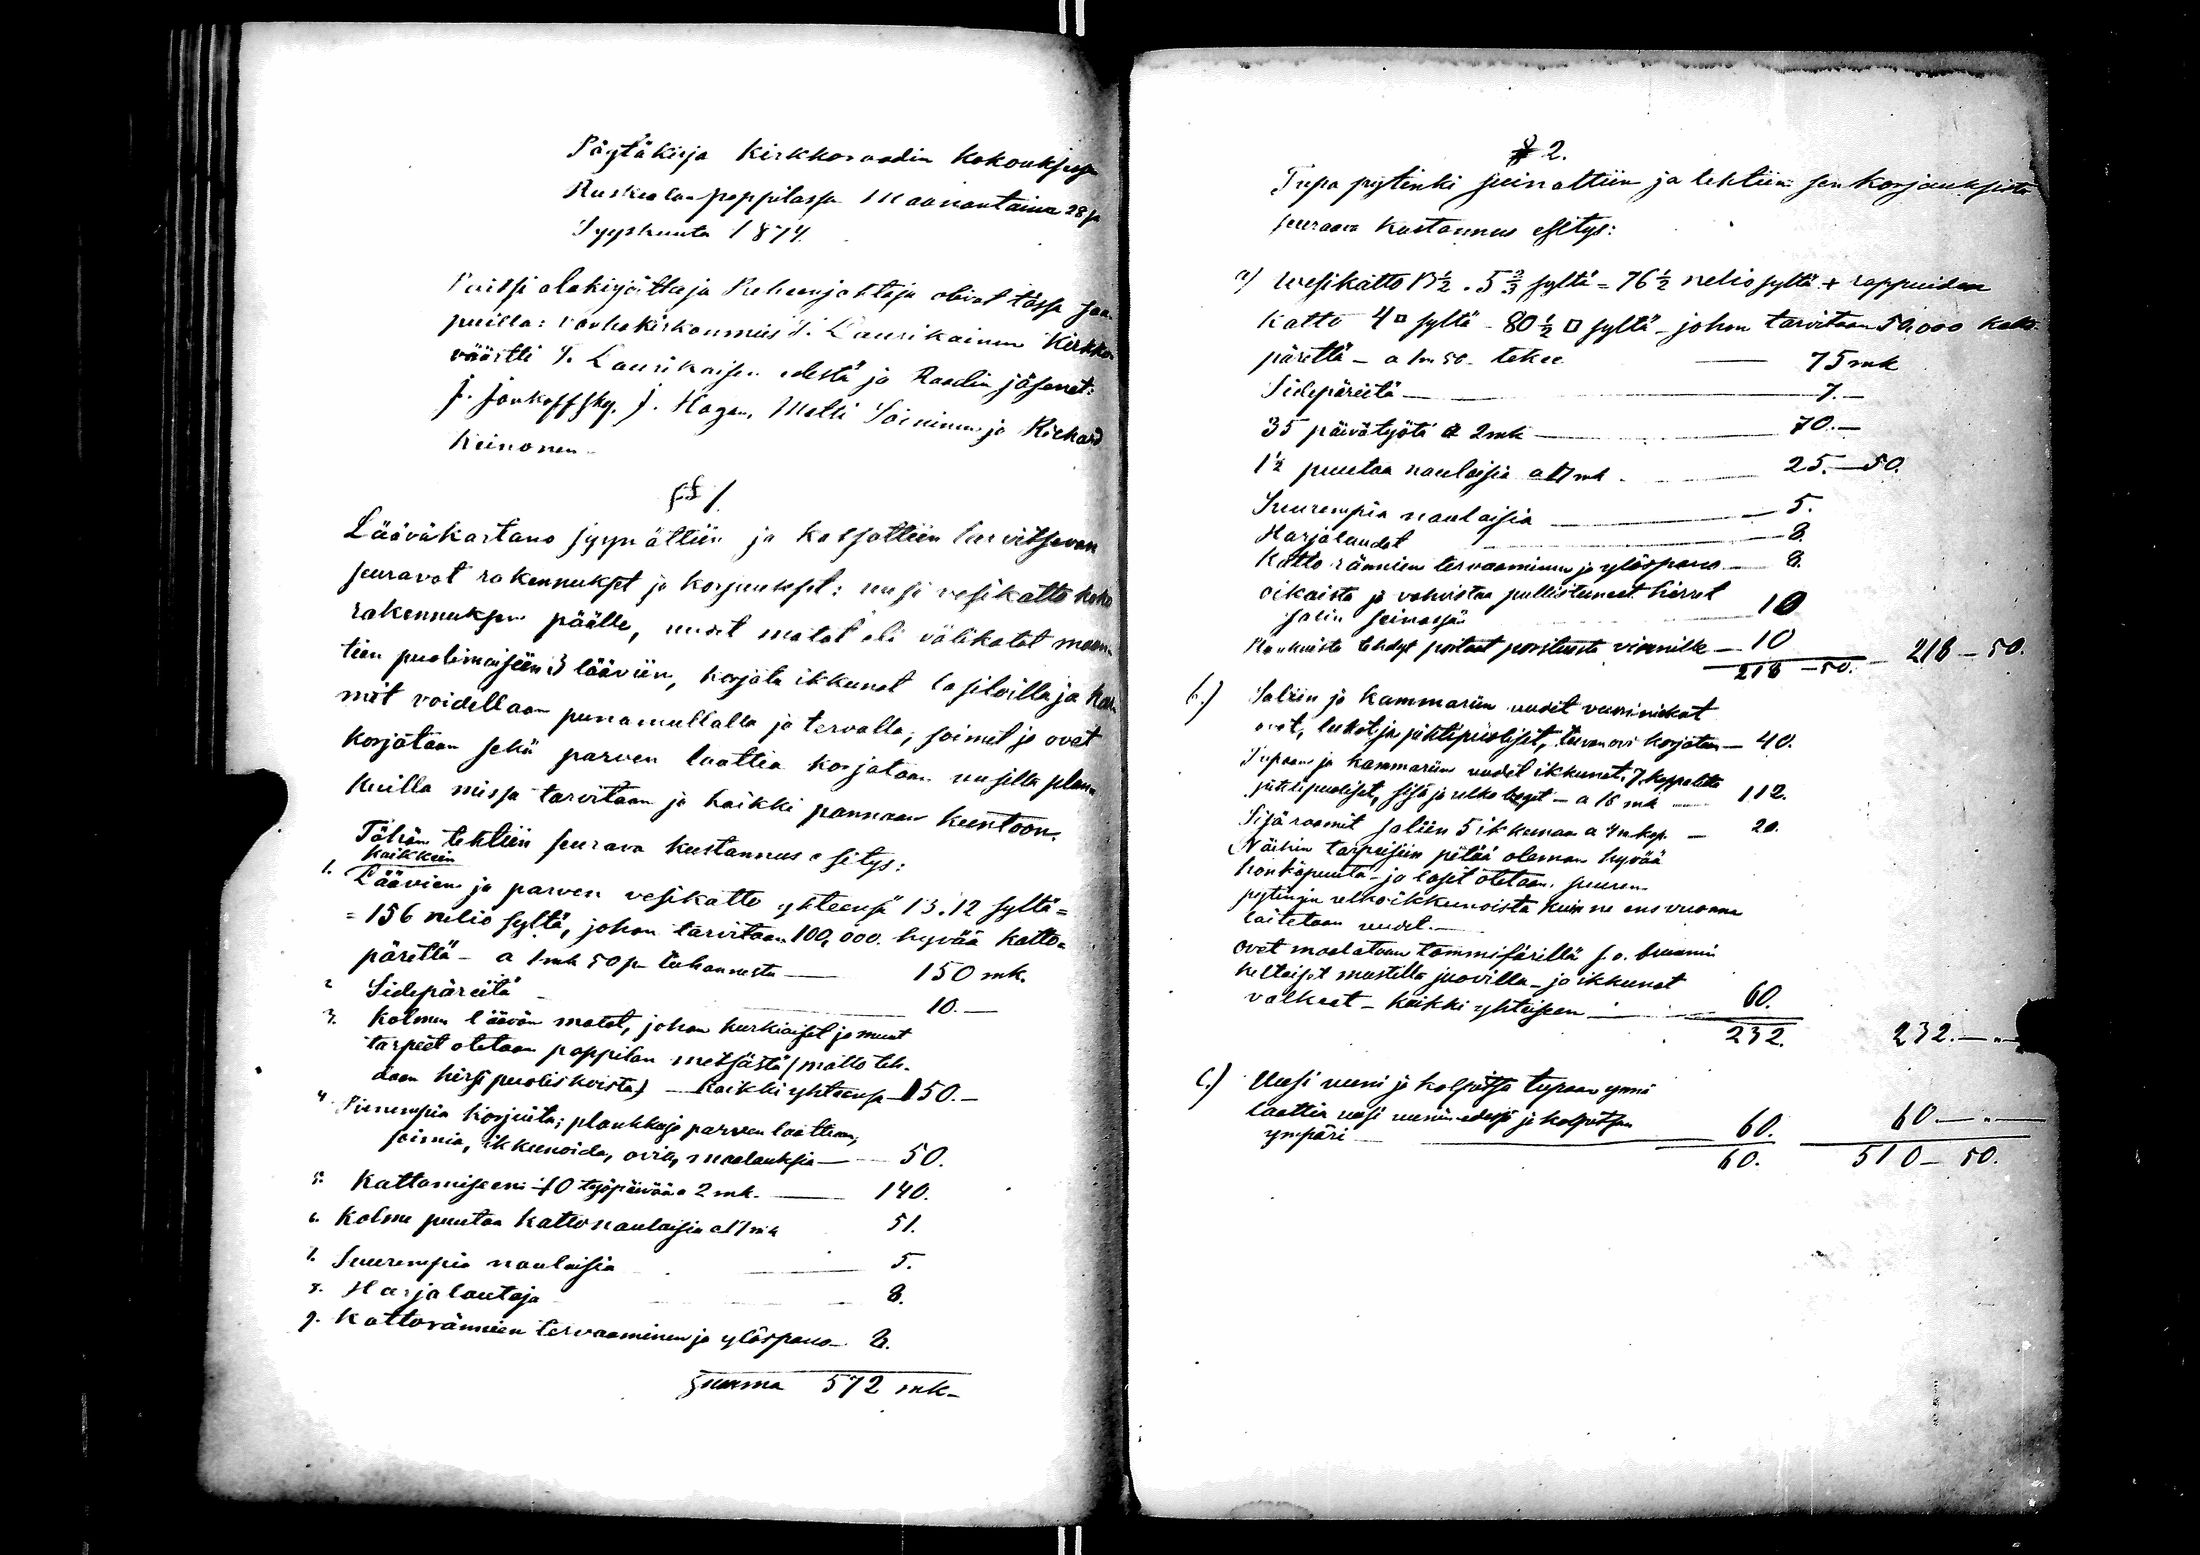 Pöytäkirja Kirkkoraadin kokouksessa
Ruskealan pappilassa Maanantaina 28 p
Syyskuuta 1874.
Paitsi alakirjoittaja Puheenjohtaja olivat tässä saa-
puilla: vanha kirkonmies T. Laurikainen Kirkko
väärtti T. Laurikaisen edestä ja Raadin jäsenet:
J. Jonkoffsky, J. Hagan, Matti Soininen ja Richard
Keinonen
§ 1.
Lääväkartano syynättiin ja katsottiin tarvitsevan
seuravat rakennukset ja korjuukset: uusi vesikatto koko
rakennuksen päälle, uudet matot eli välikatot maan
tien puolimaisiin 3 lääviin, korjata ikkunat lasiloilla ja kar
mit voidellaan punamullalla ja tervalla; soimet ja ovet
korjataan sekä parven laattia korjataan uusilla plan
kuilla missä tarvitaan ja kaikki pannaan kuntoon.
Tähän tehtiin seurava kustannus esitys:
kaikkein
1. Läävien ja parven vesikatto yhteensä 13.12 syltä =
= 156 neliö syltä, johon tarvitaan 100,000. hyvää katto-
pärettä - a 1 mk 50 p:n tuhannesta — 150 mk.
2 Sidepäreitä 10. —
3. Kolmen läävän matot, johon kurkiaiset ja muut
tarpeet otetaan pappilan metsästä (matto teh-
daan hirsi puoliskoista) — Kaikki yhteensä — 150. —
4 Pienempia korjuita; plankkuja parven laattiaan,
soimia, ikkunoida, ovia, maalauksia — 50.
5. Kattamiseen 70 työpäivää a 2 mk. — 140.
6. Kolme puutaa kattonaulaisia a 17 mk 51.
7. Suurempia naulaisia 5.
8. Harjalautoja 8.
9. Kattorännien tervaaminen ja ylöspano — 8.
Summa 572 mk —
§ 2.
Tupa pytinki syinattiin ja tehtiin sen korjauksista
seuraava kustannus esitys:
a) Wesikatto 13½ . 5⅔ syltä = 76½ neliö syltä + rappuiden
katto 4 □ syltä - 80½ □ syltä - johon tarvitaan 50,000 katto-
pärettä - a 1 m 50. tekee — 75 mk
Sidepäreitä — 7. —
35 päivätyötä a 2 mk — 70. —
1½ puutaa naulaisia a 17 mk — 25. — 50.
Suurempia naulaisia — 5.
Harjalaudat — 8.
Katto rännien tervaaminen ja ylöspano — 8.
oikaista ja vahvistaa pullistuneet hirret
salin seinassa 10
tehdyt portaat porstuasta vinnille — 10
218 — 50. — 218 — 50.
b.) Saliin ja kammariin uudet
ovet, lukot ja pihtipuoliset, tuvan ovi korjataan — 40.
Tupaan ja kammariin uudet ikkunat, 7 kappaletta
pihtipuoliset, sisä ja ulko — a 16 mk — 112.
Sisä raamit saliin 5 ikkunaan a 4 m kap. — 20.
Näihin tarpeisiin pitää oleman hyvää
honkapuuta - ja lasit otetaan. suuren
pytingin ulko ikkunoista kuin ne ens vuonna
laitetaan uudet. —
ovet maalataan tammifärillä s.o. bruunin
keltaiset mustilla juovilla - ja ikkunat
valkeat - kaikki yhteiseen — 60.
232. 232. — „ —
c.) Uusi uuni ja kolpitsa tupaan ynnä
laattia uusi uunin edessä ja kolpitsan
ympäri — 60. 60. — „ —
60. 510 — 50.